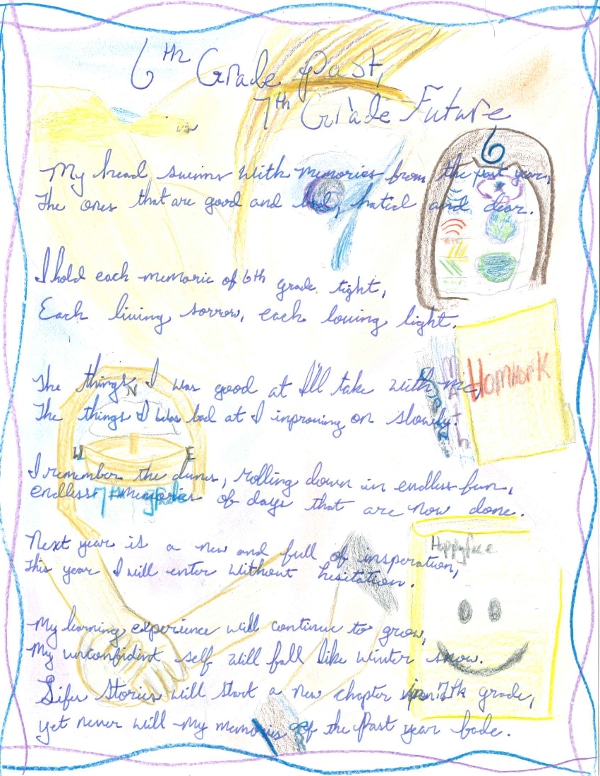 6th Grade Past,
7th Grade Future
My head swims with memories from the past year,
The ones that are good and bad, hatid and dear.
I hold each memorie of 6th grade tight,
Each living sorrow, each loving light.
The things I was good at I'll take with me,
The things I was bad at I improving on slowly.
I remember the dunes, rolling down in endless fun,
endless memories of days that are now done.
Next year is a new and full of insperation,
This year I will enter without hesitation.
My learning experience will continue to grow,
My unconfident self will fall like winter snow.
Lifes stories will start a new chapter in 7th grade,
yet never will my memories of the past year fade.
6
Homwork
Math
N
W
E
7th grade
Happyface